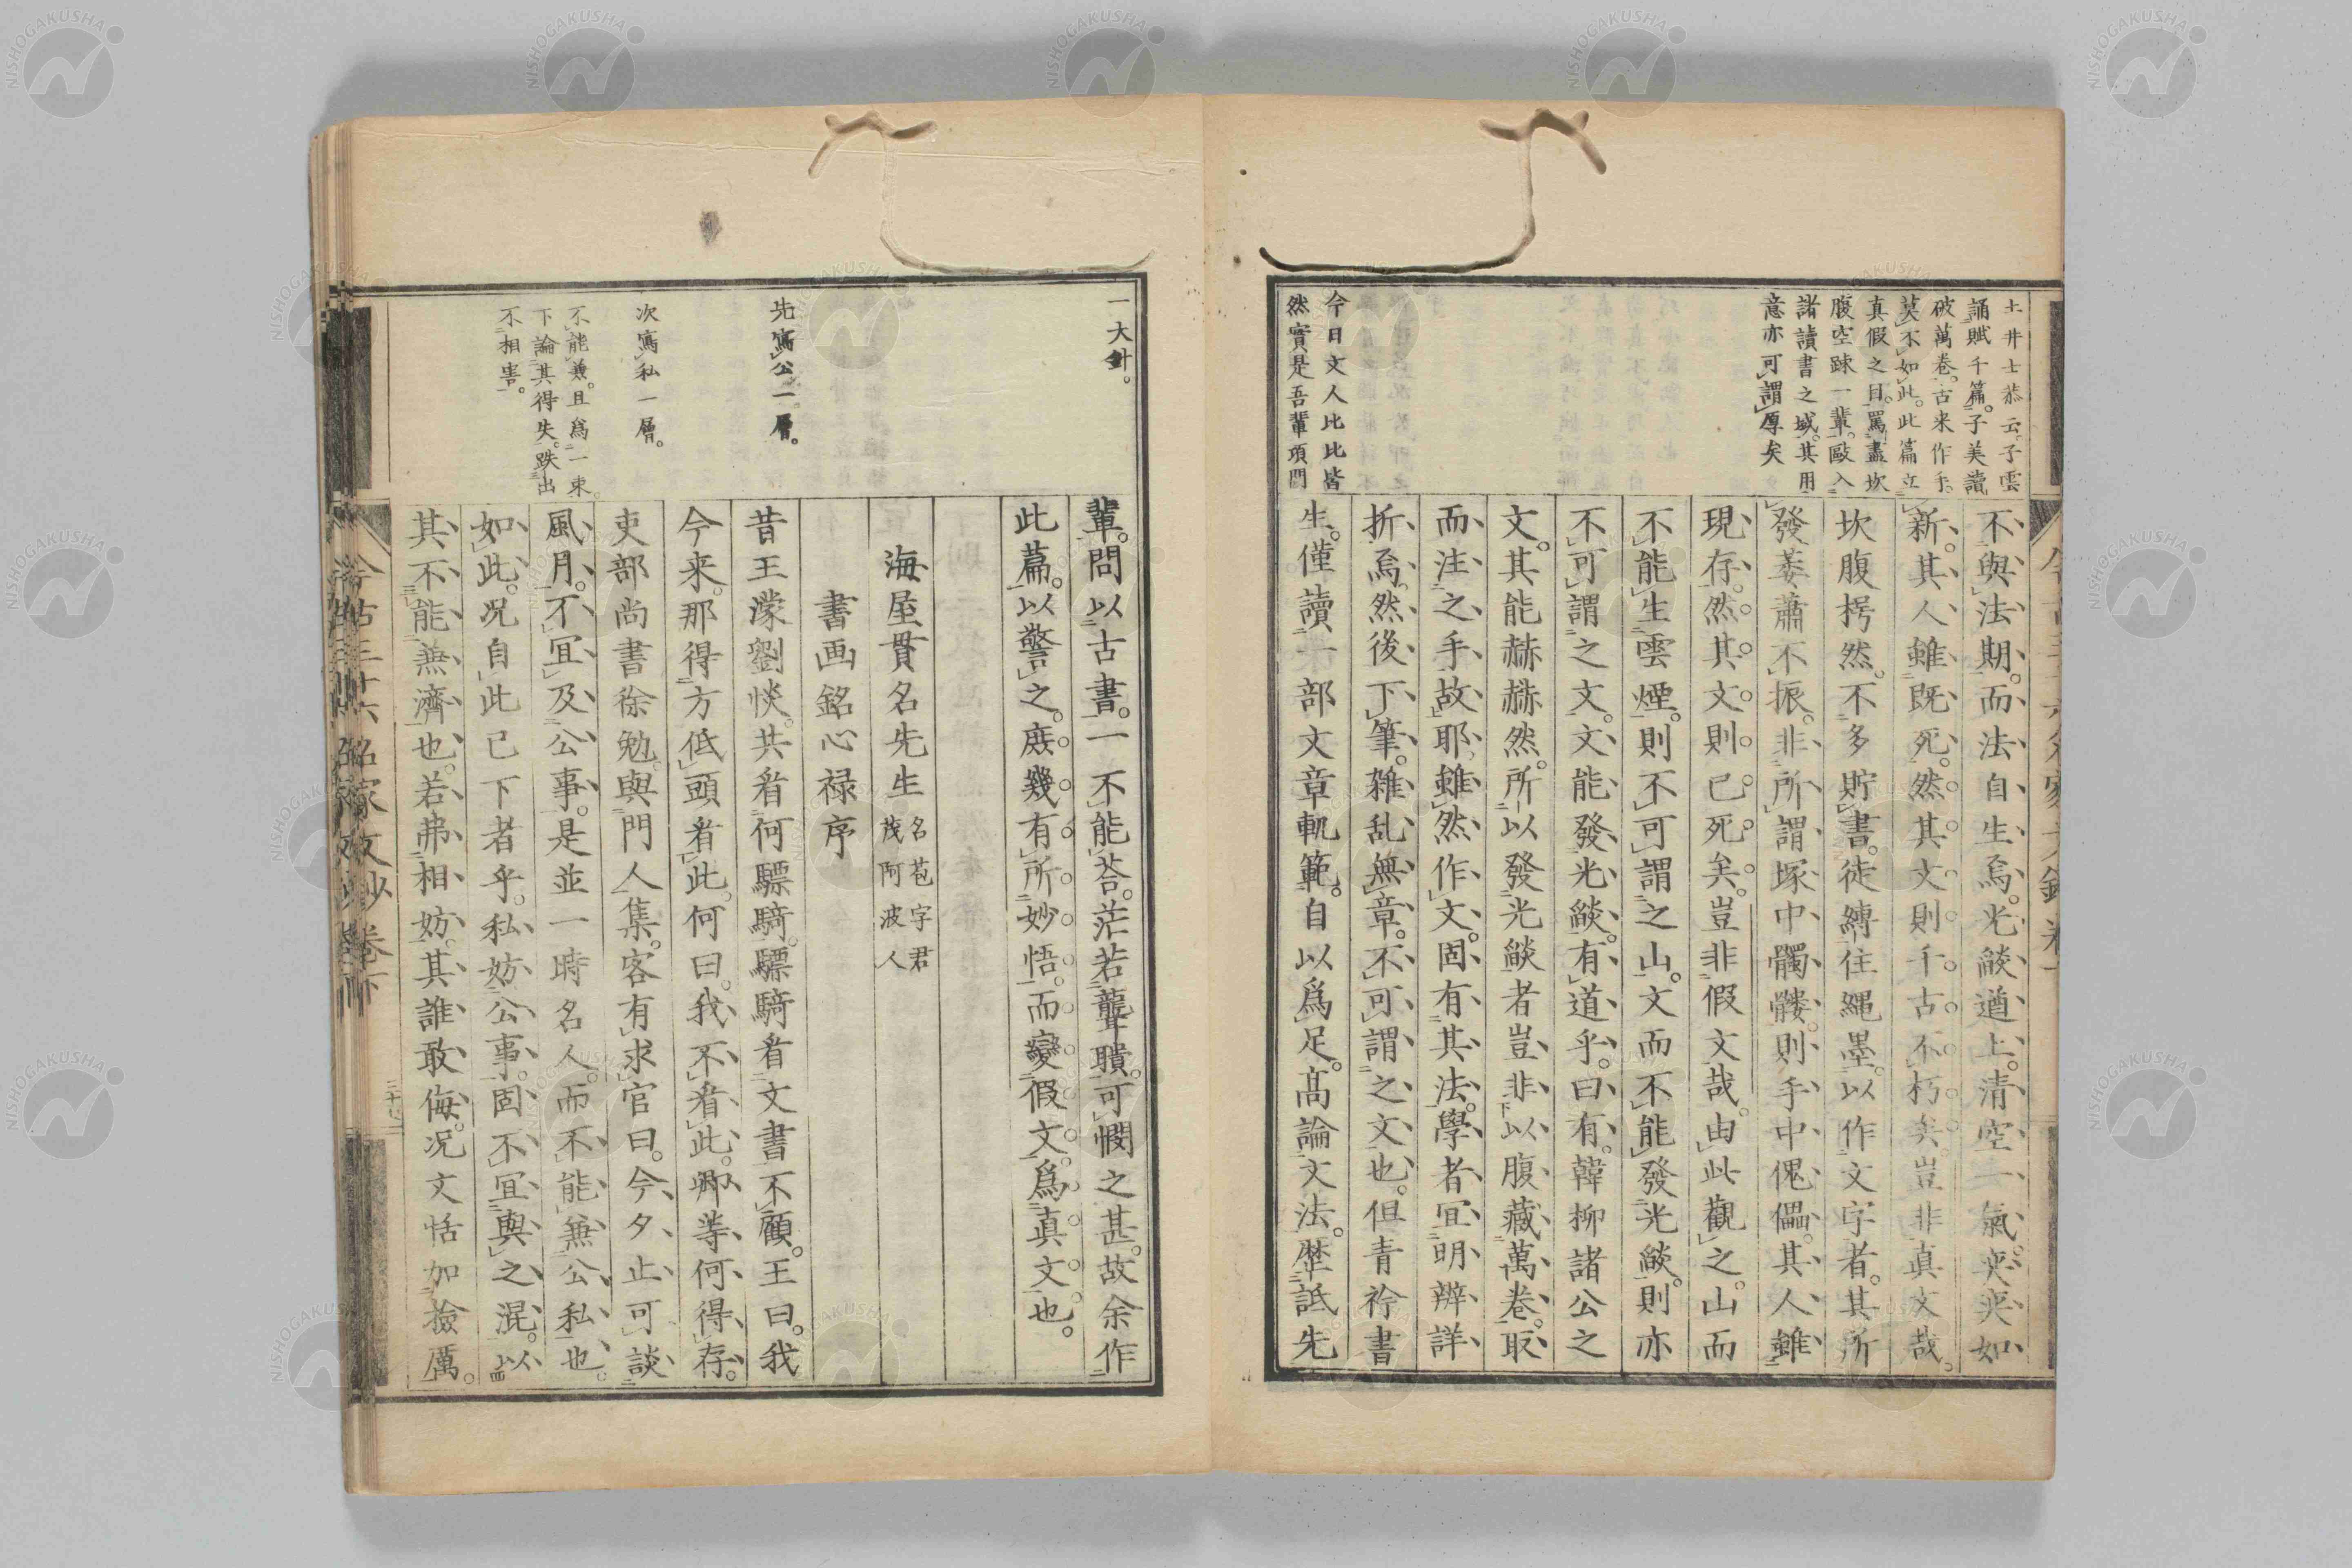 土井士恭云子雲
誦賦千篇。子美讀
破萬卷。古来作手。
莫不如此。此篇立
真假之目。罵盡坎
腹空踈一輩。歐入
諸讀書之域。其用
意亦可謂厚矣
今日文人比比皆
然實是吾輩項門
不與法期。而法自生焉。光燄遒上。清空一氣。奕奕如
新。其人雖既死。然其文則千古不朽矣。豈非真文哉。
坎腹枵然。不多貯書。徒縛住繩墨。以作文字者。其所
發萎蕭不振。非所謂塚中髑髏。則手中傀儡。其人雖
現存。然其文則已死矣。豈非假文哉。由此觀之。山而
不能生雲煙。則不可謂之山。文而不能發光燄。則亦
不可謂之文。文能發光燄。有道乎。曰有。韓柳諸公之
文。其能赫赫然。所以發光燄者豈非以腹藏萬卷。取
而注之手故耶。雖然作文。固有其法。學者宜明辨詳
折焉。然後下筆。雜乱無章。不可謂之文也。但青衿書
生。僅讀一部文章軌範。自以爲足。高論文法。歷詆先
一大針。
先寫公一層。
次寫私一層。
不能兼。且爲一束。
下論其得失。跌出
不相害。
輩。問以古書。一不能荅。茫若聾聵。可憫之甚。故余作
此篇。以警之。庶幾有所妙悟。而變假文。爲真文也。
海屋貫名先生 名苞字君茂阿波人
書画銘心禄序
昔王濛劉惔。共看何驃騎。驃騎看文書不顧。王曰。我
今来。那得方低頭看此。何曰。我不看此。卿等何得存。
吏部尚書徐勉。與門人集。客有求官曰。今夕止可談
風月。不宜及公事。是並一時名人。而不能無公私也。
如此。况自此已下者乎。私妨公事。固不宜與之混。以
其不能無濟也。若弗相妨。其誰敢侮。况文恬加撿厲。
今古三十六名家文鈔卷下